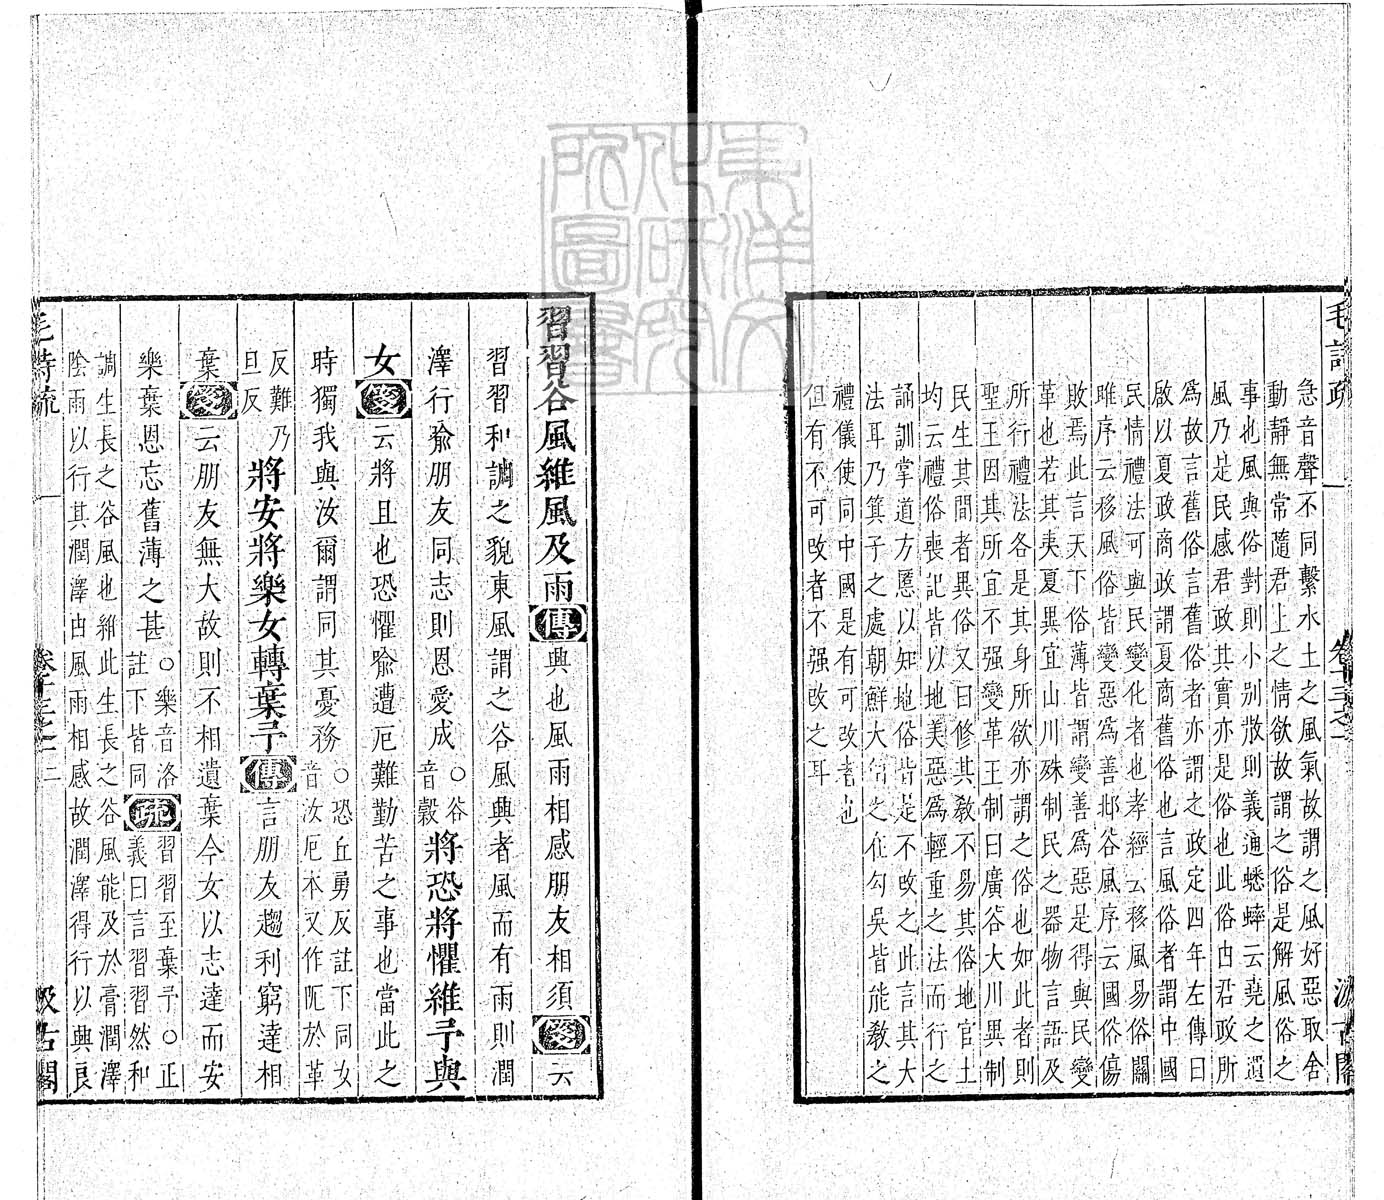 毛詩疏
卷十三之一
汲古閣
急音聲不同繫水土之風氣故謂之風好惡取舍
動靜無常隨君上之情欲故謂之俗是解風俗之
事也風與俗對則小別散則義通蟋蟀云堯之遺
風乃是民感君政其實亦是俗也此俗由君政所
為故言舊俗言舊俗者亦謂之政定四年左傳曰
啟以夏政商政謂夏商舊俗也言風俗者謂中國
民情禮法可與民變化者也孝經云移風易俗關
雎序云移風俗皆變惡為善邶谷風序云國俗傷
敗焉此言天下俗薄皆謂變善為惡是得與民變
革也若其夷夏異宜山川殊制民之器物言語及
所行禮法各是其身所欲亦謂之俗也如此者則
聖王因其所宜不强變革王制曰廣谷大川異制
民生其間者異俗又曰修其敎不易其俗地官土
均云禮俗喪記皆以地美惡為輕重之法而行之
誦訓掌道方慝以知地俗皆是不改之此言其大
法耳乃箕子之處朝鮮大伯之在勾吳皆能敎之
禮儀使同中國是有可改者也
但有不可改者不强改之耳
習習谷風維風及雨傳興也風雨相感朋友相須箋云
習習和調之貌東風謂之谷風興者風而有雨則潤
澤行喻朋友同志則恩愛成○谷音穀將恐將懼維予與
女箋云將且也恐懼喻遭厄難勤苦之事也當此之
時獨我與汝爾謂同其憂務○恐丘勇反註下同女
音汝厄本又作阨於革
反難乃
旦反將安將樂女轉棄予傳言朋友趨利窮達相
棄箋云朋友無大故則不相遺棄今女以志達而安
樂棄恩忘舊薄之甚○樂音洛
註下皆同疏習習至棄予○正
義曰言習習然和
調生長之谷風也維此生長之谷風能及於膏潤澤
陰雨以行其潤澤由風雨相感故潤澤得行以興良
毛詩疏
卷十三之一
二
汲古閣